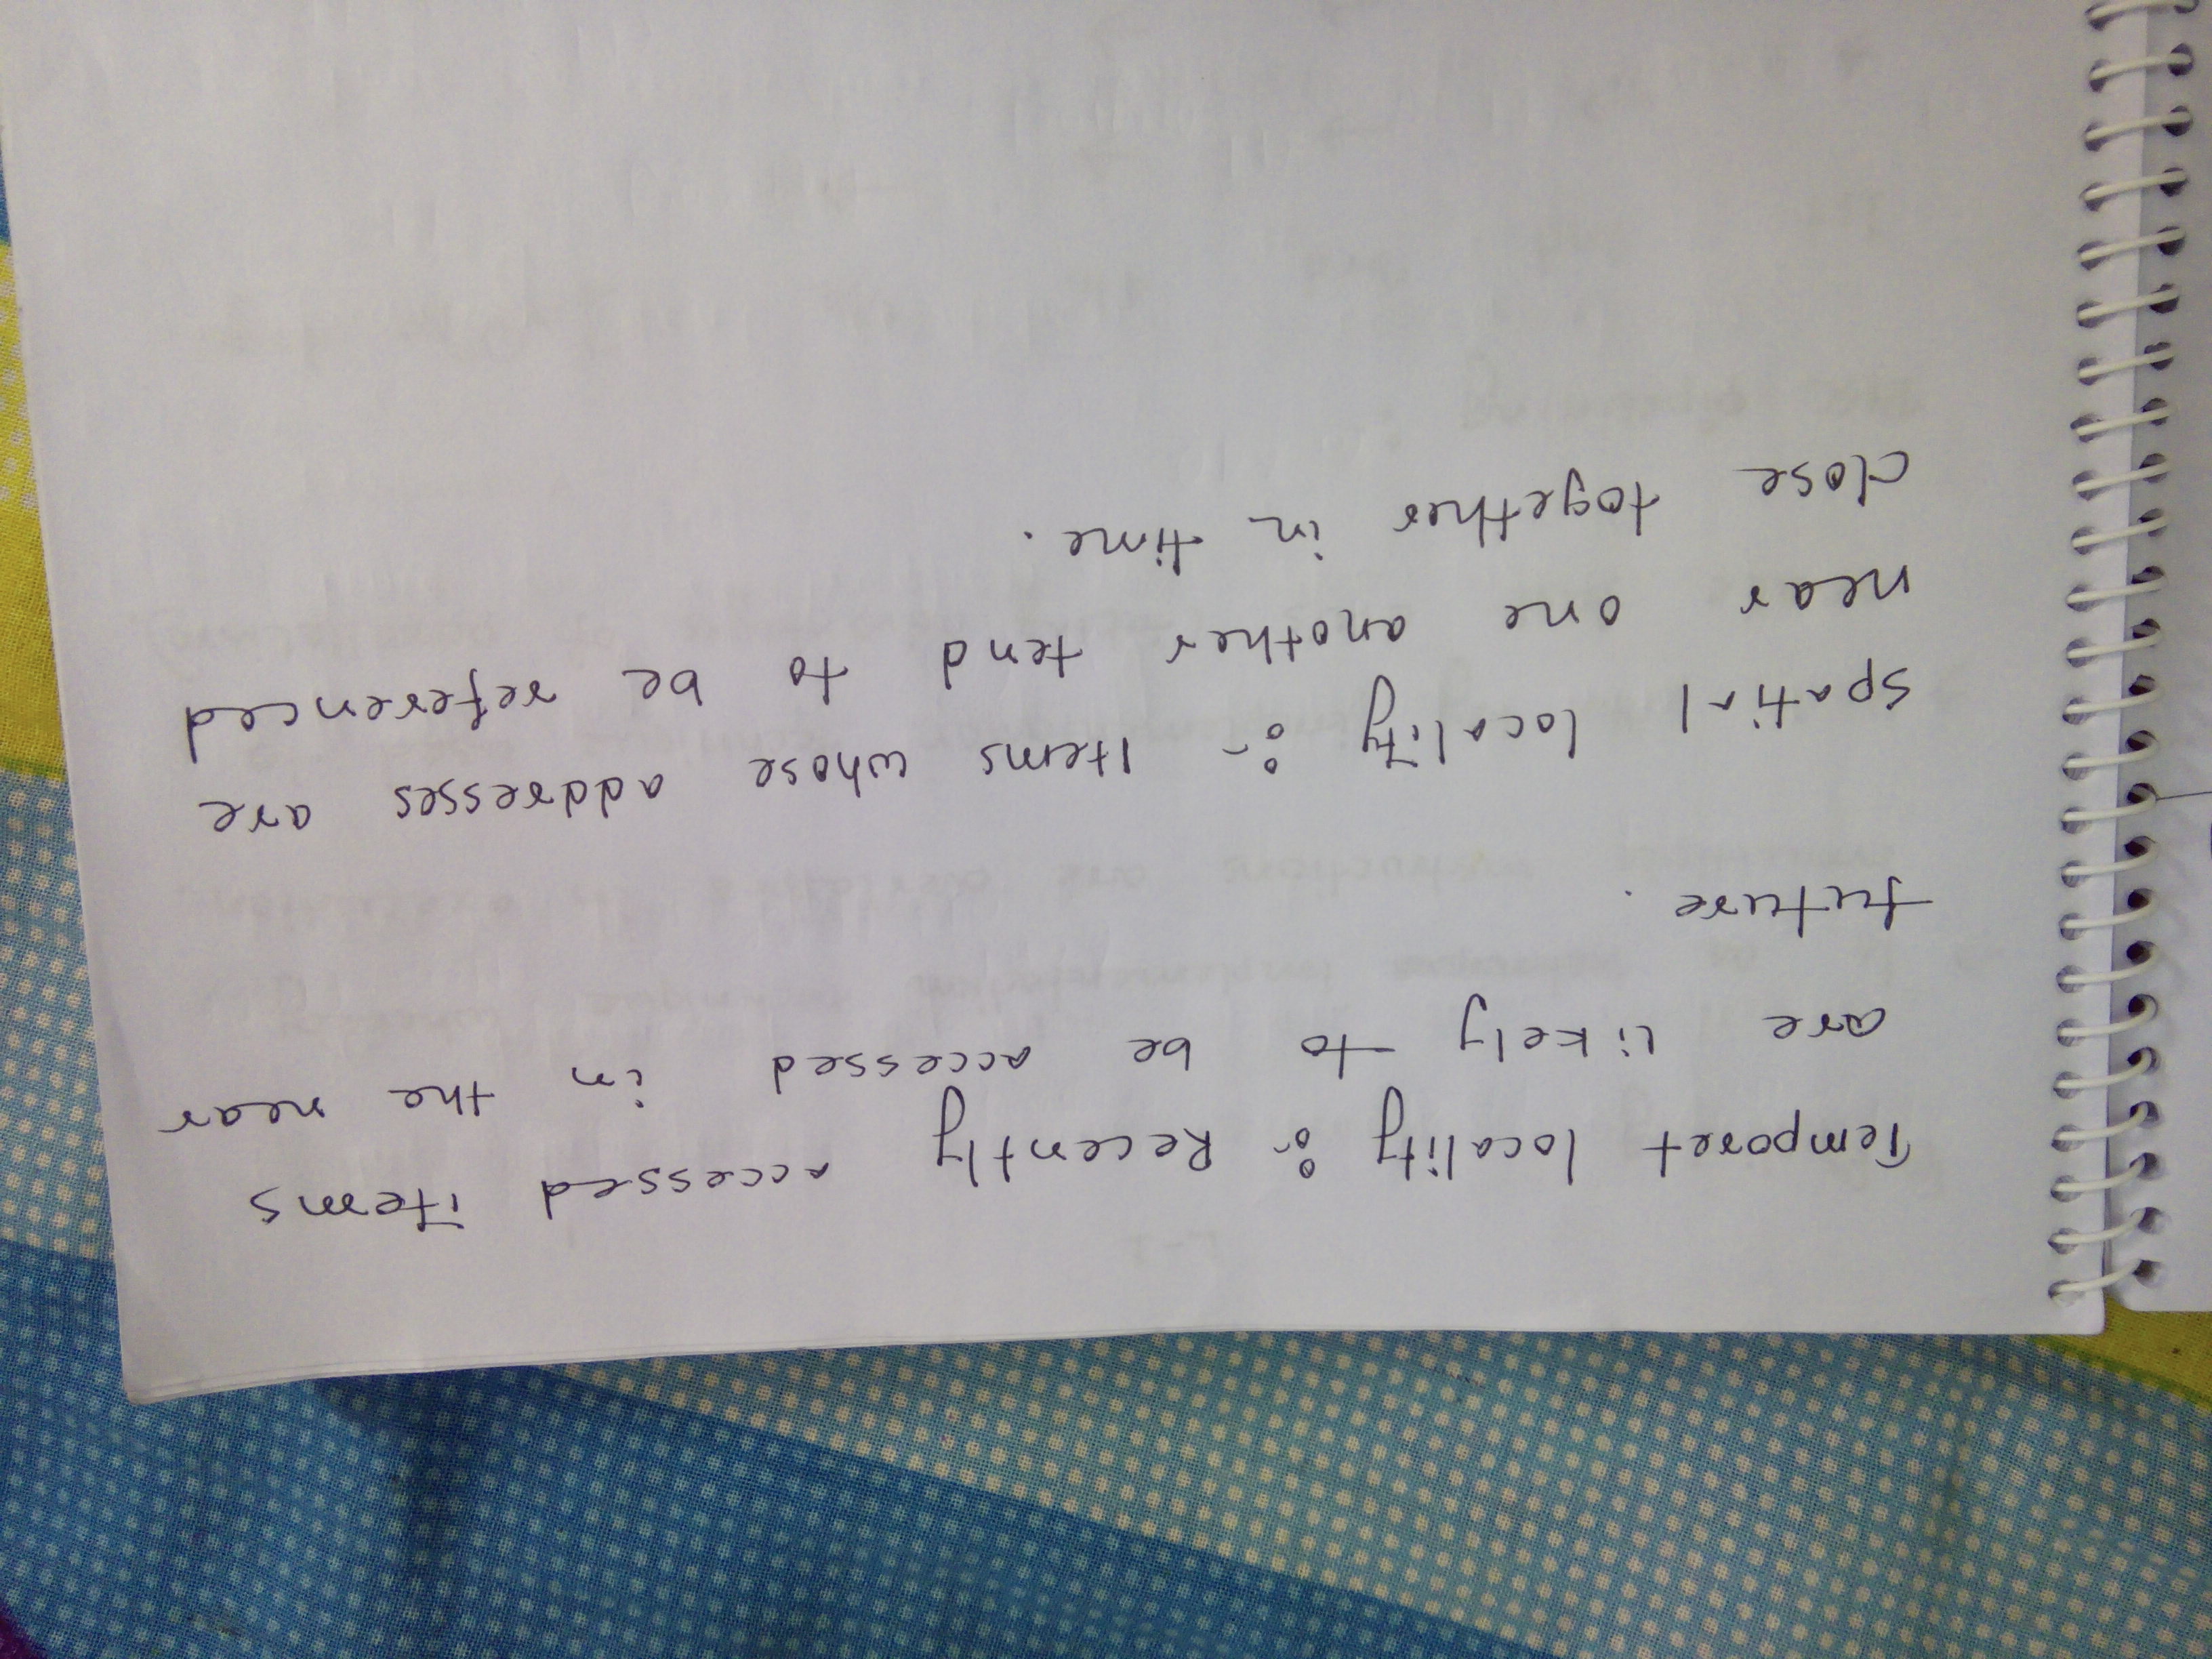 Temporet locality :- Recently accessed items
are likely to be accessed in the near
future.
spatial locality :- Items whose addresses are
near one another tend to be referenced
close together in time.